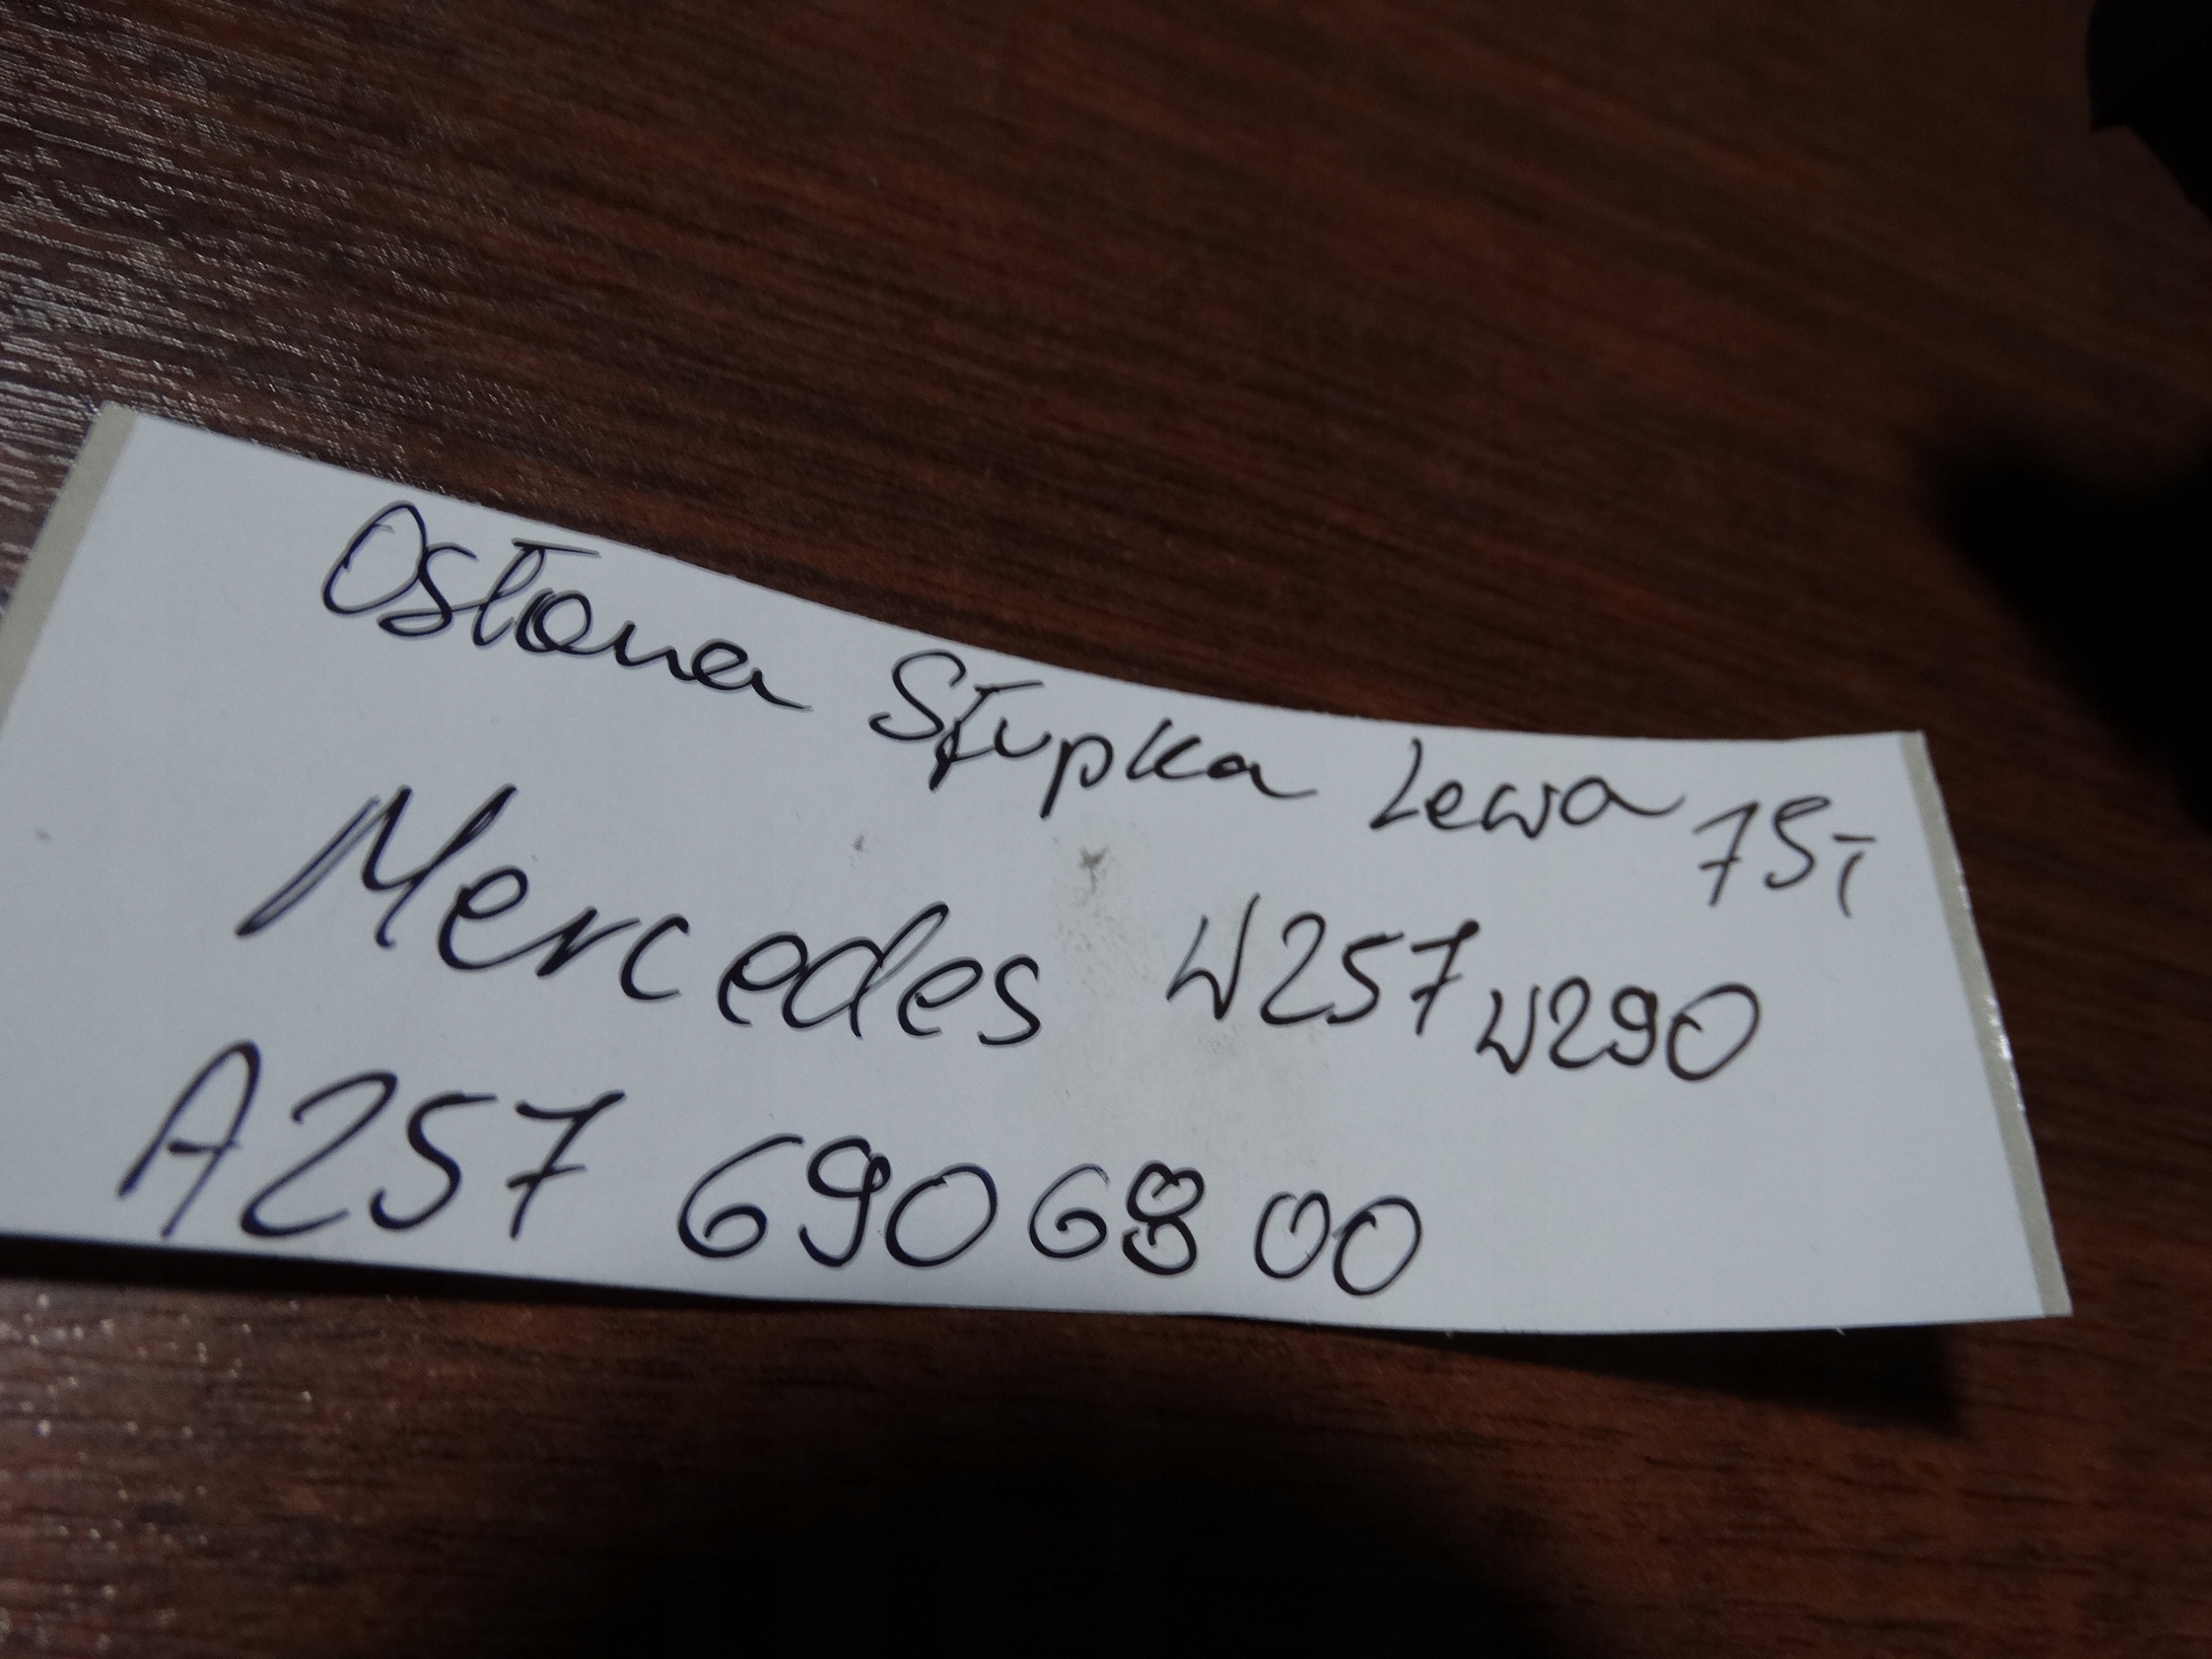 Osłona Słupka Lewa
Mercedes W257 W290
A257 690 68 00